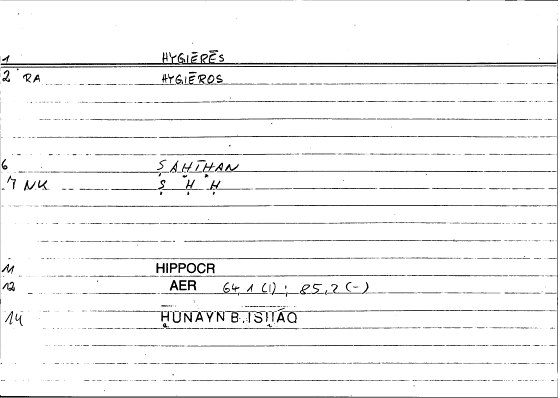 1 HYGIĒRĒS
2 RA HYGIĒROS
6 ṢAḤĪḤAN
7 NK Ṣ Ḥ Ḥ
11 HIPPOCR
12 AER 64,1 (1) ; 85,2 (-)
14 ḤUNAYN B. ISḤĀQ